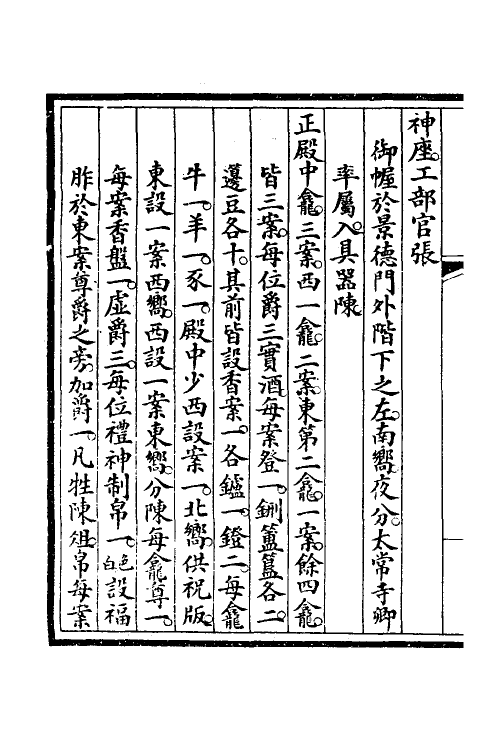 神座工部官張
御幄於景德門外階下之左南嚮夜分太常寺卿
率屬入具器陳
正殿中龕三案西一龕二案東第二龕一案餘四龕
皆三案每位爵三實酒每案登一鉶簠簋各二
籩豆各十其前皆設香案一各鑪一鐙二每龕
牛一羊一豕一殿中少西設案一北嚮供祝版
東設一案西嚮西設一案東嚮分陳每龕尊一
每案香盤一虛爵三每位禮神制帛一白色設福
胙於東案尊爵之旁加爵一凡牲陳俎帛每案